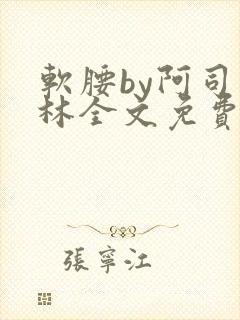 軟腰by阿司
林全文免費
張寧江